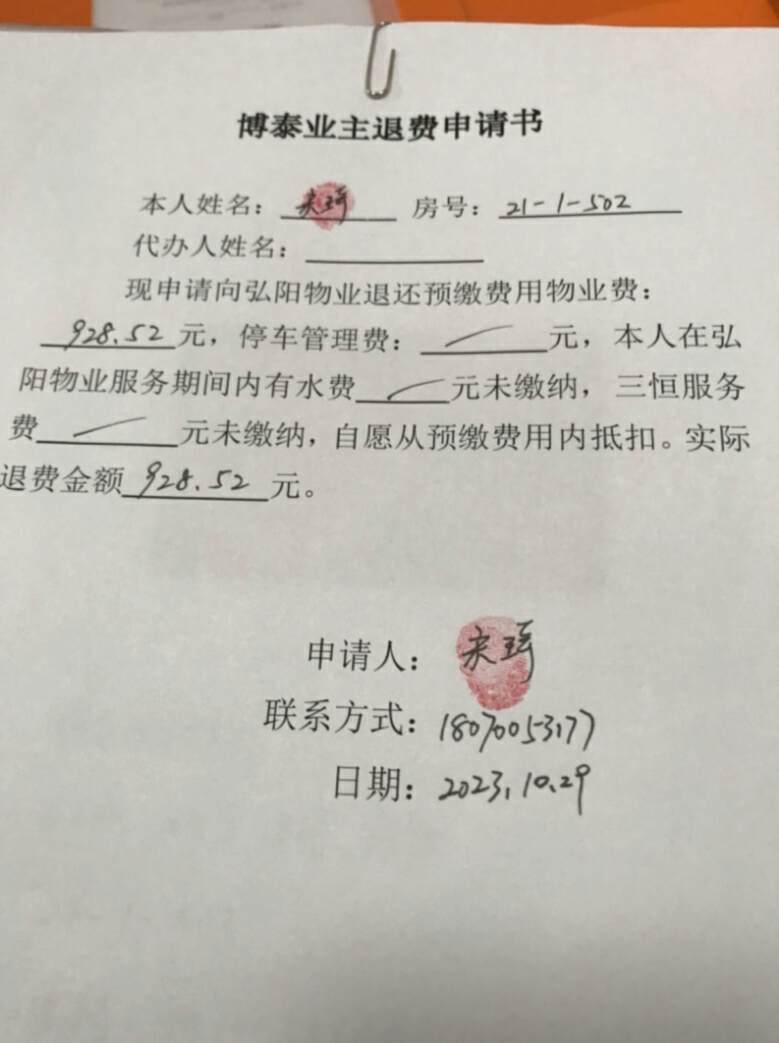 博泰业主退费申请书
本人姓名：宋琦 房号：21-1-502
代办人姓名：
现申请向弘阳物业退还预缴费用物业费：
928.52元，停车管理费：/元，本人在弘
阳物业服务期间内有水费/元未缴纳，三恒服务
费/元未缴纳，自愿从预缴费用内抵扣。实际
退费金额928.52元。
申请人：宋琦
联系方式：18070053177
日期：2023.10.29